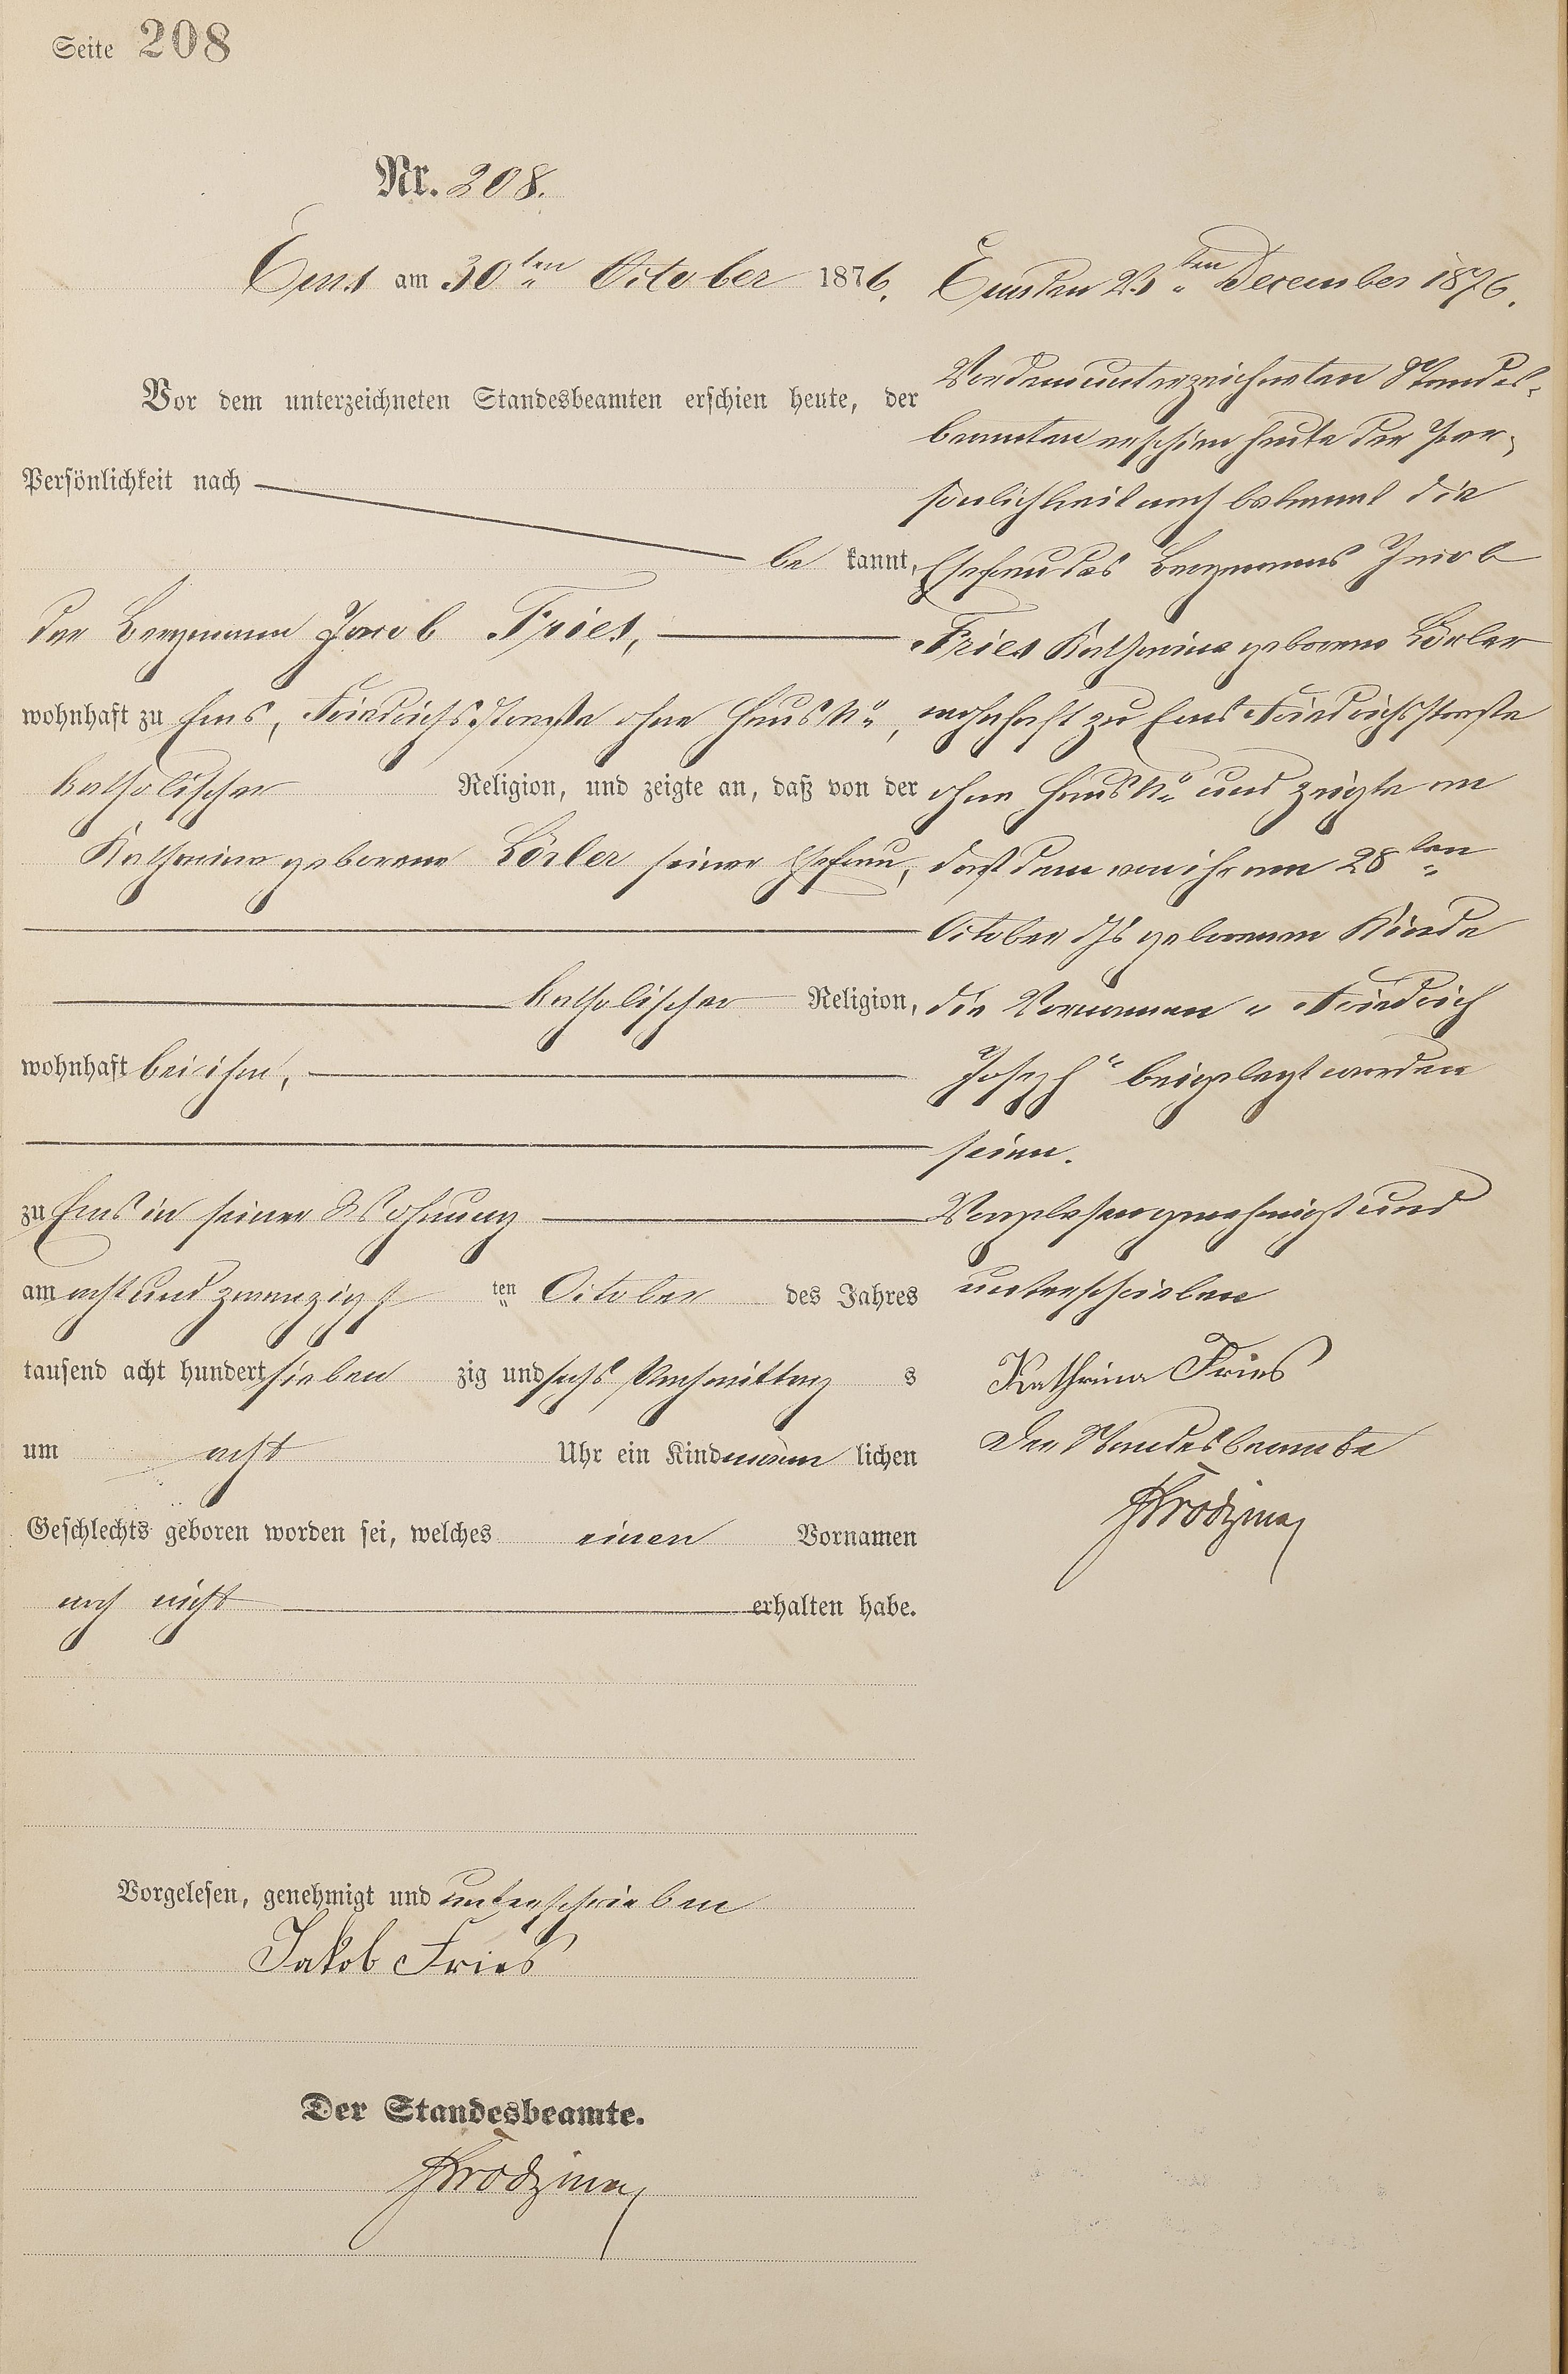 Seite 208
Nr. 208.
Ems am 30ten October 1876.
Vor dem unterzeichneten Standesbeamten erschien heute, der
Persönlichkeit nach
be kannt,
der Bergmann Jacob Fries,
wohnhaft zu Ems, Friedrichsstraße ohne Haus No,
katholischer Religion, und zeigte an, daß von der
Katharina geborene Lörler seiner Ehefrau,
katholischer Religion,
wohnhaft bei ihm,
zu Ems in seiner Wohnung
am acht und zwanzigst ten October des Jahres
tausend acht hundert sieben zig und sechs Nachmittag s
um acht Uhr ein Kind männ lichen
Geschlechts geboren worden sei, welches einen Vornamen
noch nicht erhalten habe.
Vorgelesen, genehmigt und unterschrieben
Jakob Fries
Der Standesbeamte.
Ems den 23ten December 1876.
Vor dem unterzeichneten Standes-
beamten erschien heute der Per-
sönlichkeit nach bekannt die
Ehefrau des Bergmanns Jacob
Fries Katharina geborene Lörler
wohnhaft zu Ems Friedrichsstraße
ohne Haus No und zeigte an
daß dem von ihr am 28ten
October d Js geborenen Kinde
die Vornamen „Friedrich
Joseph" beigelegt worden
seien.
Vorgelesen genehmigt und
unterschrieben
Kathrina Fries
Der Standesbeamte